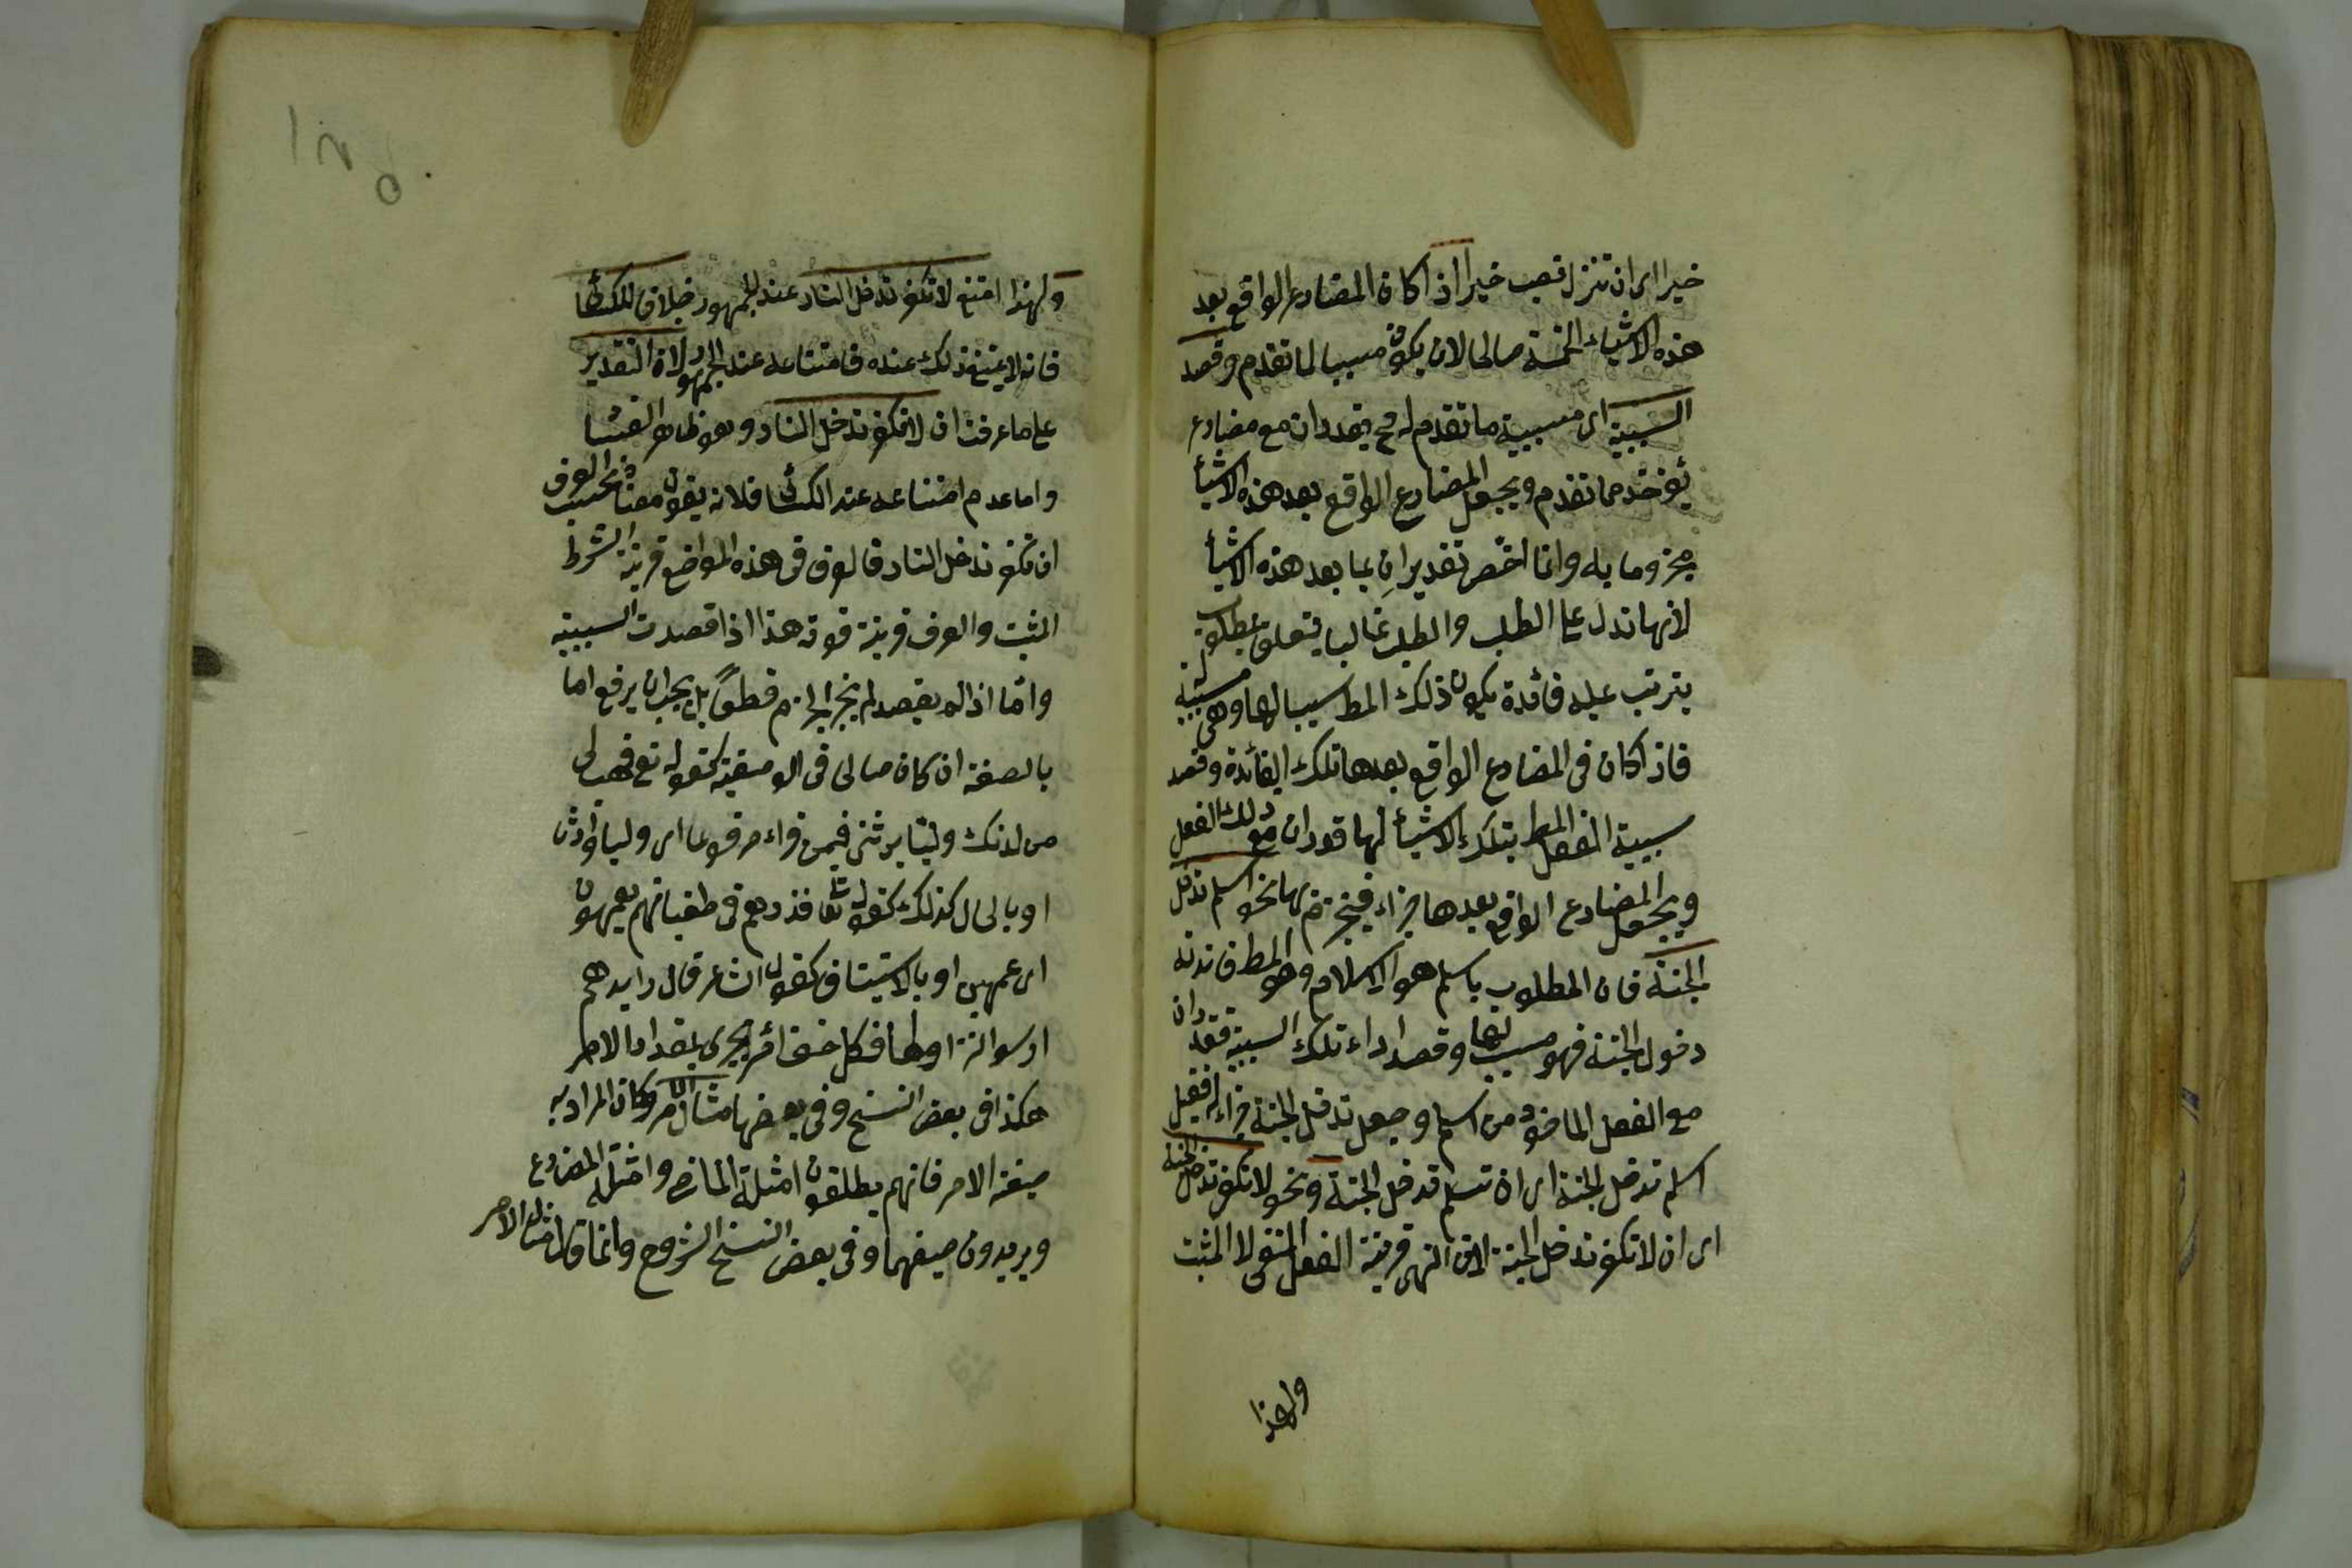 خيرا اى ان تنزل تصب خيرا اذا كان المضارع الواقع بعد
هذه الاشياء الخمسة صالحا لان يكون مسببا لما تقدم وقصد
السببية اى سببية ما تقدم له فح يقدر ان مع مضارع
يؤخذ مما تقدم ويجعل المضارع الواقع بعد هذه الاشيأ
مجزوما به وانما اختص تقدير ان بما بعد هذه الاشيأ
لانها تدل على الطلب والطلب غالبا يتعلق بمطلوب
يترتب عليه فائدة يكون ذلك المط سببا لها وهى مسببة له
فاذا كان فى المضارع الواقع بعدها تلك الفائدة وقصد
سببية الفعل المط بتلك الاشيأ لها قدر ان مع ذلك الفعل
ويجعل المضارع الواقع بعدها جزاء فينجزم بها نحو اسلم تدخل
الجنة فان المطلوب باسلم هو الاسلام وهو المط فائدته
دخول الجنة فهو سبب لها وقصد اداء تلك السببية فقدر ان
مع الفعل المأخوذ من اسلم وجعل تدخل الجنة جزاء له فقيل
اسلم تدخل الجنة اى ان تسلم تدخل الجنة ونحو لا تكفر تدخل الجنة
اى ان لا تكفر تدخل الجنة لان النهى قرينة الفعل المنفى لا المثبت
ولهذا
ولهذا امتنع لا تكفر تدخل النار عند الجمهور خلافا للكسائى
فانه لا يمتنع ذلك عنده فامتناعه عند الجمهور لان التقدير
على ما عرفت ان لا تكفر تدخل النار وهو ظاهر الفسا
واما عدم امتناعه عند الكسائى فلانه يقول معناه بحسب العرف
ان تكفر تدخل النار فالعرف فى هذه المواضع قرينة الشرط
المثبت والعرف قرينة قوية هذا اذا قصدت السببية
واما اذا لم يقصد لم يجز الجزم قطعا بل يجب ان يرفع اما
بالصفة ان كان صالحا للوصفية كقوله تع فهب لى
من لدنك وليا يرثنى فيمن قراء مرفوعا اى وليا وارثا
او بالحال كذلك كقوله تعا فذرهم فى طغيانهم يعمهون
اى عمهين او بالاستيناف كقول الشاعر قال رايدهم
ارسوا نزاولها فكل حتف امرئ يجرى بمقدار الامر
هكذا فى بعض النسخ وفى بعضها مثال الامر وكان المراد به
صيغة الامر فانهم يطلقون امثلة الماضى وامثلة المضارع
ويريدون صيغهما وفى بعض النسخ الشروح وانما قال مثال الامر